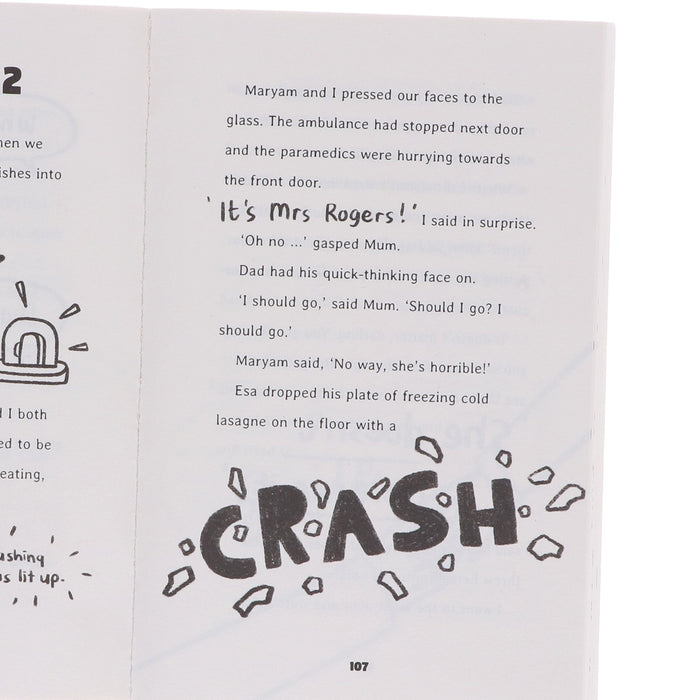 2
we
into
I both
to be
eating,
lit up.
Maryam and I pressed our faces to the
glass. The ambulance had stopped next door
and the paramedics were hurrying towards
the front door.
'It's Mrs Rogers!' I said in surprise.
'Oh no ...' gasped Mum.
Dad had his quick-thinking face on.
'I should go,' said Mum. 'Should I go? I
should go.'
Maryam said, 'No way, she's horrible!'
Esa dropped his plate of freezing cold
lasagne on the floor with a
CRASH
107